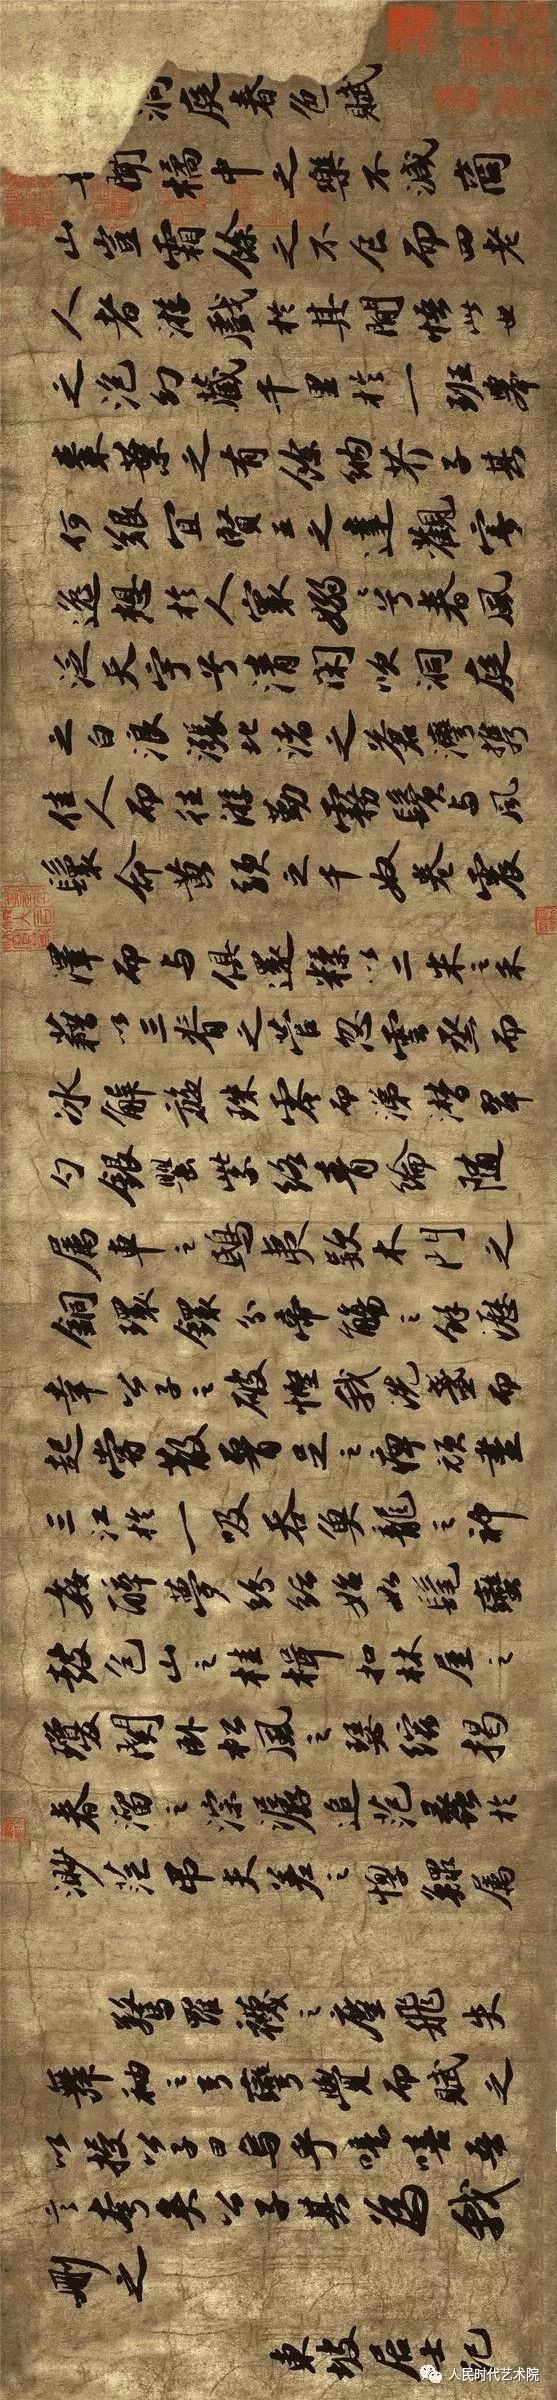 洞庭春色賦
聞橘中之樂不減商
山豈霜餘之不食而四老
人者游戲於其間悟此世
之泡幻藏千里於一班舉
棗葉之有餘納芥子其
何艱宜賢王之達觀寄
逸想於人寰嫋々兮春風
泛天宇兮清閑吹洞庭
之白浪漲北渚之蒼灣攜
佳人而往游勤霧鬢与風
鬟命黃頭之千奴卷震
澤而与俱還糅以二米之禾
藉以三脊之菅忽雲烝而
冰解旋珠零而涕潸翠
勺銀罌紫絡青綸隨
屬車之鴟夷款木門之
銅環鐶分帝觴之餘瀝
幸公子之破慳我洗盞而
起嘗散腰足之痺頑盡
三江於一吸吞魚龍之神
姦醉夢紛紜始如髦蠻
鼓包山之桂楫扣林屋之
瓊關臥松風之瑟縮揭
春溜之淙潺追范蠡於
渺茫弔夫差之惸鰥屬
驚羅襪之塵飛失
舞袖之弓彎覺而賦之
以授公子曰烏乎噫嘻吾
言夸矣公子其為我
刪之
東坡居士記
人民时代艺术院